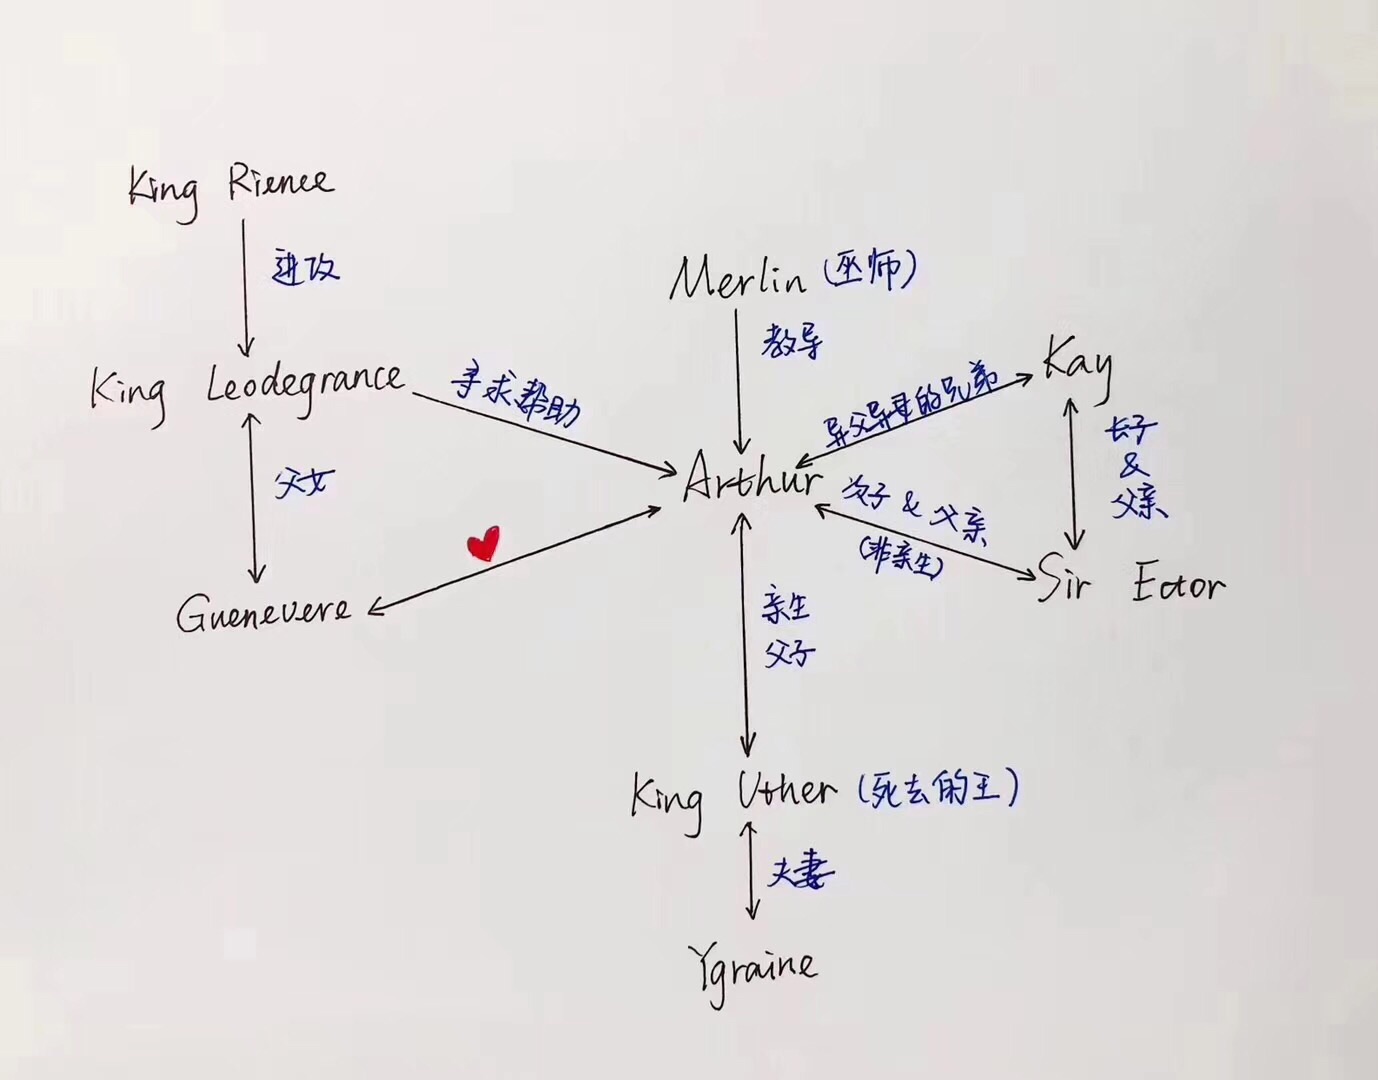 King Rience
进攻
Merlin (巫师)
教导
Kay
King Leodegrance
寻求帮助
异父异母的兄弟
长子
&
父亲
父女
Arthur
次子 & 父亲
(非亲生)
Sir Ector
Guenevere
亲生
父子
King Uther (死去的王)
夫妻
Ygraine